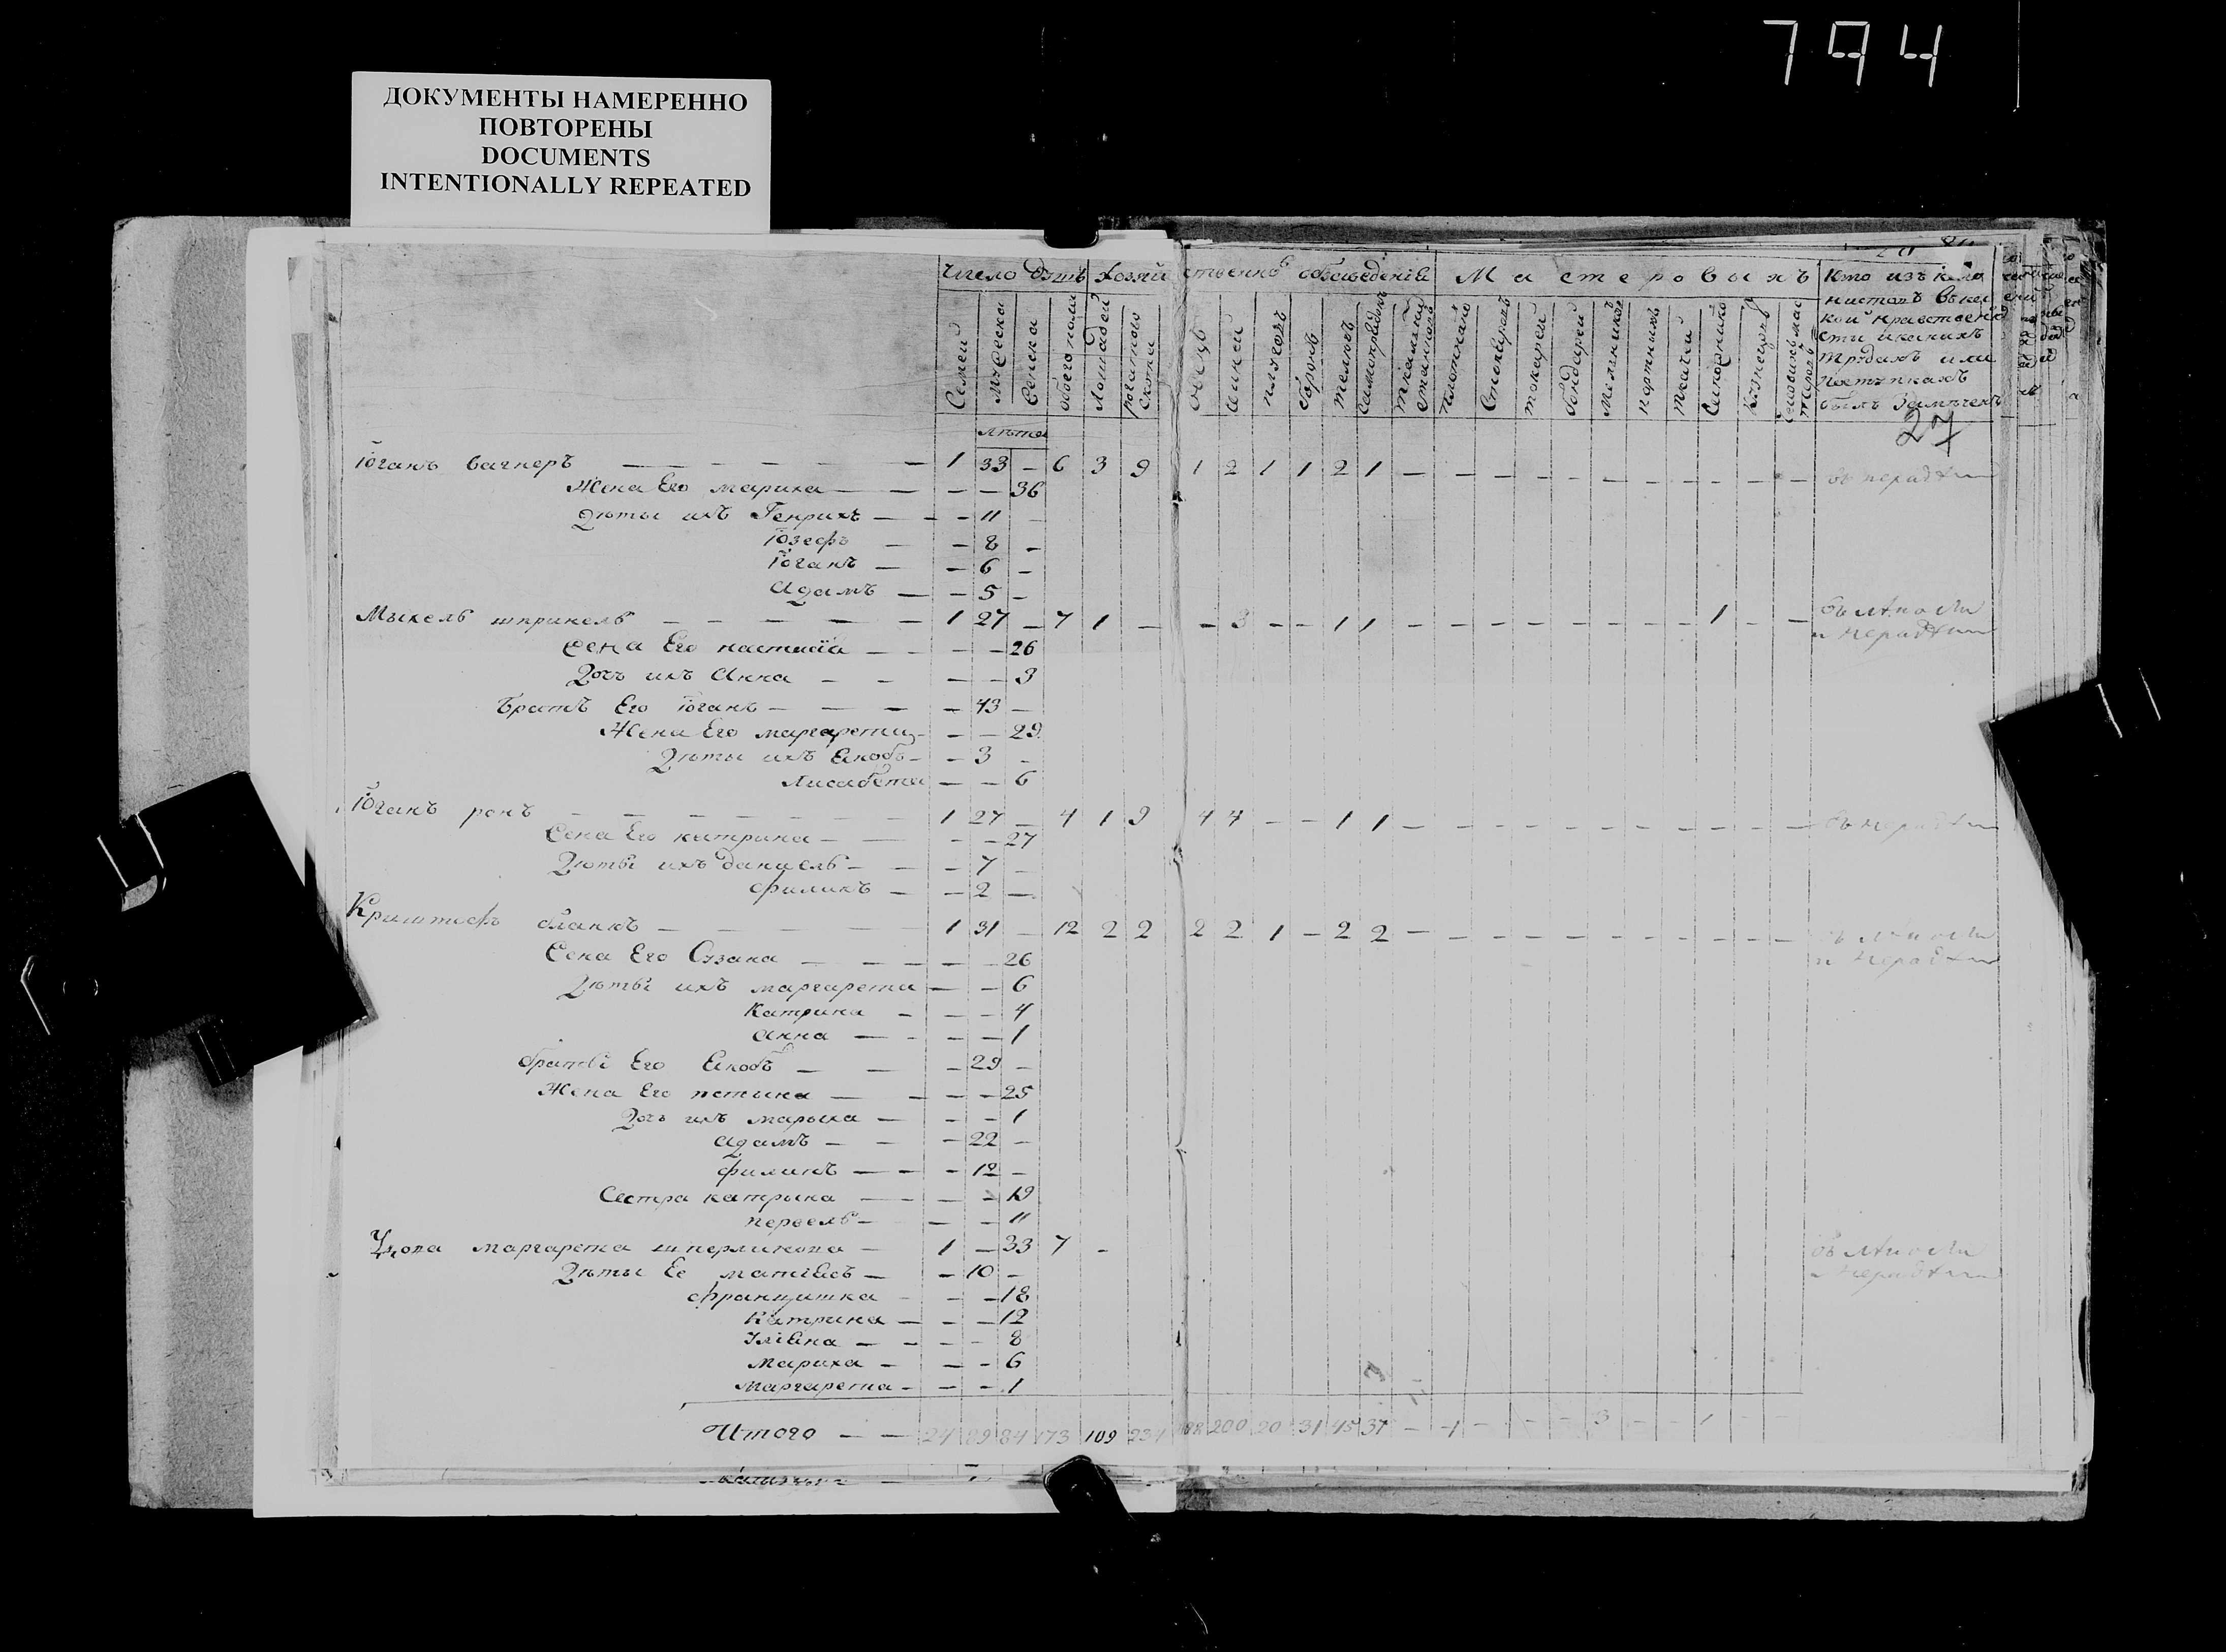 794
ДОКУМЕНТЫ НАМЕРЕННО
ПОВТОРЕНЫ
DOCUMENTS
INTENTIONALLY REPEATED
Число душъ Хозяйственнѣ обзаведенïе Мастеровыхъ Кто изъ коло
нистовъ въ ка
кой нравственно
сти и какихъ
трудахъ или
поступкахъ
былъ замѣченъ
Семей мужеска женска обоего пола Лошадей рогатого скота овецъ свиней плуговъ боронъ телегъ самопрядокъ ткацкихъ становъ плотниковъ столяровъ токарей бондарей Мельниковъ портныхъ ткачей сапожниковъ Кузнецовъ
лѣта
27
Юганъ вагнеръ — 1 33 — 6 3 9 1 2 1 1 2 1 — въ нерадѣнïи
Жена Его мариха — — — 36
Дѣты ихъ Генрихъ — — 11 —
Юзефъ — — 8 —
Юганъ — — 6 —
Адамъ — — 5 —
Мыхель шпрингель — 1 27 — 7 1 — — 3 — — 1 1 — 1 — — въ лѣности
и нерадѣнïи
жена Его настасïа — — — 26
Дочъ ихъ Анна — — — 3
братъ Его Юганъ — — 43 —
Жена Его маргарета — — 29
Дѣты ихъ Якобъ — — 3 —
Лисабета — — 6
Юганъ рокъ — 1 27 — 4 1 9 4 4 — — 1 1 — въ нерадѣнïи
жена Его катрина — — — 27
Дѣты ихъ данïель — — 7 —
филипъ — — 2 —
Криштофъ бланкъ — 1 31 — 12 2 2 2 2 1 — 2 2 — въ лѣности
и нерадѣнïи
жена Его Сузана — — — 26
Дѣты ихъ маргарета — — 6
Катрина — — — 4
анна — — — 1
братъ Его Якобъ — — 29 —
Жена Его — — — 25
Дочъ ихъ марыха — — — 1
адамъ — — 22 —
филипъ — — 12 —
Сестра катрына — — — 19
— — 11
Удова маргарета — 1 — 33 7 — въ лѣности
и нерадѣнïи
Дѣты Ее матïясъ — — 10 —
францишка — — — 18
Катрина — — — 12
Улïяна — — — 8
Мариха — — — 6
маргарета — — — 1
Итого — — 24 89 84 173 109 234 188 200 20 31 45 37 — 1 — — — 3 — — 1 — —